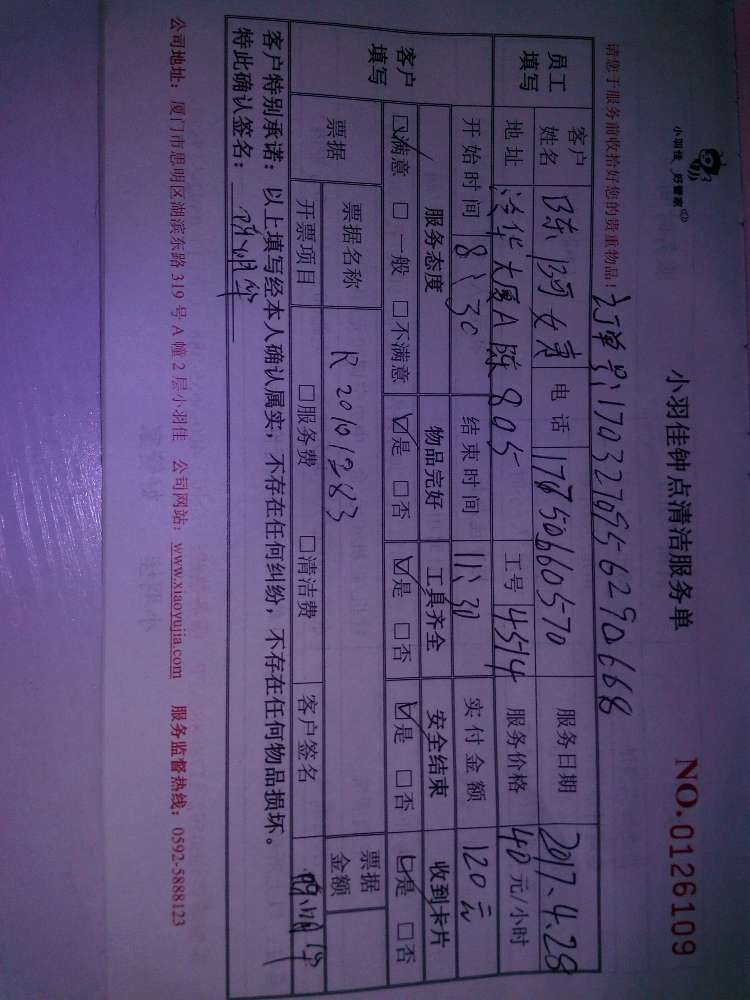 小羽佳 好管家
小羽佳钟点清洁服务单
NO.0126109
请您于服务前收拾好您的贵重物品!
订单号:1703270956290668
员工填写 客户姓名 陈阿女 电话 17750660570 服务日期 2017.4.28
地址 法华大厦A 805 工号 4574 服务价格 40元/小时
开始时间 8:30 结束时间 11:30 实付金额 120元
客户填写 服务态度 物品完好 工具齐全 安全结束 收到卡片
☑满意 □一般 □不满意 ☑是 □否 ☑是 □否 ☑是 □否 ☑是 □否
票据 票据名称 R20101283 票据金额
开票项目 □服务费 □清洁费 客户签名
客户特别承诺:以上填写经本人确认属实,不存在任何纠纷,不存在任何物品损坏。
特此确认签名:
公司地址:厦门市思明区湖滨东路319号A幢2层小羽佳 公司网站:www.xiaoyujia.com 服务监督热线:0592-5888123